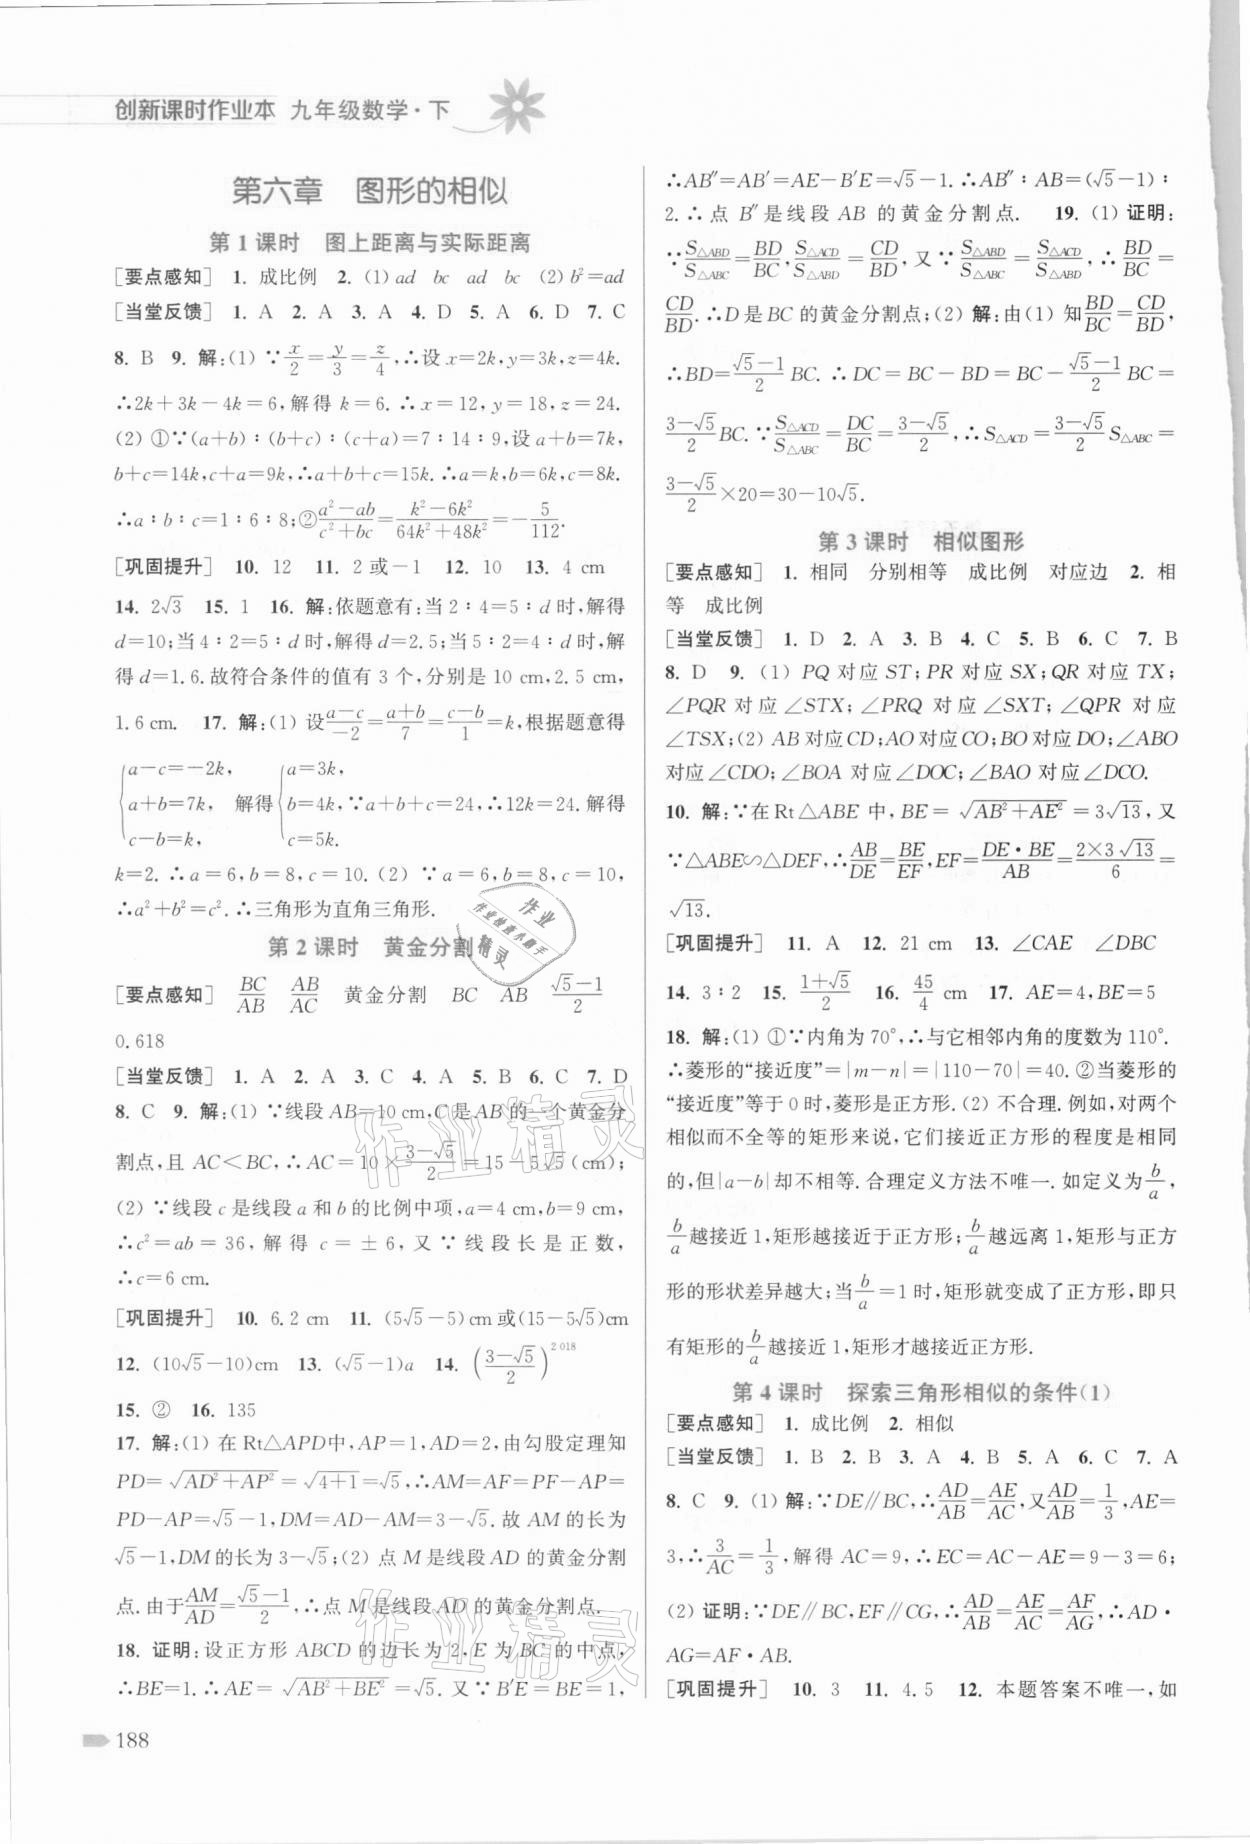 创新课时作业本 九年级数学·下
第六章 图形的相似
第1课时 图上距离与实际距离
[要点感知] 1. 成比例 2. (1) ad bc ad bc (2) b²=ad
[当堂反馈] 1. A 2. A 3. A 4. D 5. A 6. D 7. C
8. B 9. 解:(1) ∵x/2=y/3=z/4,∴设 x=2k,y=3k,z=4k.
∴2k+3k-4k=6,解得 k=6.∴x=12,y=18,z=24.
(2) ①∵(a+b)∶(b+c)∶(c+a)=7∶14∶9,设 a+b=7k,
b+c=14k,c+a=9k,∴a+b+c=15k.∴a=k,b=6k,c=8k.
∴a∶b∶c=1∶6∶8;②(a²-ab)/(c²+bc)=(k²-6k²)/(64k²+48k²)=-5/112.
[巩固提升] 10. 12 11. 2或-1 12. 10 13. 4 cm
14. 2√3 15. 1 16. 解:依题意有:当2∶4=5∶d时,解得
d=10;当4∶2=5∶d时,解得d=2.5;当5∶2=4∶d时,解
得d=1.6.故符合条件的值有3个,分别是10 cm,2.5 cm,
1.6 cm. 17. 解:(1) 设(a-c)/(-2)=(a+b)/7=(c-b)/1=k,根据题意得
{a-c=-2k, {a=3k,
a+b=7k, 解得 b=4k,∵a+b+c=24,∴12k=24.解得
c-b=k, c=5k.
k=2.∴a=6,b=8,c=10.(2) ∵a=6,b=8,c=10,
∴a²+b²=c².∴三角形为直角三角形.
第2课时 黄金分割
[要点感知] BC/AB AB/AC 黄金分割 BC AB (√5-1)/2
0.618
[当堂反馈] 1. A 2. A 3. C 4. A 5. B 6. C 7. D
8. C 9. 解:(1) ∵线段AB=10 cm,C是AB的一个黄金分
割点,且AC<BC,∴AC=10×(3-√5)/2=15-5√5(cm);
(2) ∵线段c是线段a和b的比例中项,a=4 cm,b=9 cm,
∴c²=ab=36,解得c=±6,又∵线段长是正数,
∴c=6 cm.
[巩固提升] 10. 6.2 cm 11. (5√5-5)cm或(15-5√5)cm
12. (10√5-10)cm 13. (√5-1)a 14. ((3-√5)/2)^2 018
15. ② 16. 135
17. 解:(1) 在Rt△APD中,AP=1,AD=2,由勾股定理知
PD=√(AD²+AP²)=√(4+1)=√5,∴AM=AF=PF-AP=
PD-AP=√5-1,DM=AD-AM=3-√5.故AM的长为
√5-1,DM的长为3-√5;(2) 点M是线段AD的黄金分割
点.由于AM/AD=(√5-1)/2,∴点M是线段AD的黄金分割点.
18. 证明:设正方形ABCD的边长为2,E为BC的中点,
∴BE=1.∴AE=√(AB²+BE²)=√5.又∵B′E=BE=1,
188
∴AB″=AB′=AE-B′E=√5-1.∴AB″∶AB=(√5-1)∶
2.∴点B″是线段AB的黄金分割点. 19. (1) 证明:
∵S△ABD/S△ABC=BD/BC,S△ACD/S△ABD=CD/BD,又∵S△ABD/S△ABC=S△ACD/S△ABD,∴BD/BC=
CD/BD.∴D是BC的黄金分割点;(2) 解:由(1)知BD/BC=CD/BD,
∴BD=(√5-1)/2 BC.∴DC=BC-BD=BC-(√5-1)/2 BC=
(3-√5)/2 BC.∵S△ACD/S△ABC=DC/BC=(3-√5)/2,∴S△ACD=(3-√5)/2 S△ABC=
(3-√5)/2×20=30-10√5.
第3课时 相似图形
[要点感知] 1. 相同 分别相等 成比例 对应边 2. 相
等 成比例
[当堂反馈] 1. D 2. A 3. B 4. C 5. B 6. C 7. B
8. D 9. (1) PQ对应ST;PR对应SX;QR对应TX;
∠PQR对应∠STX;∠PRQ对应∠SXT;∠QPR对应
∠TSX;(2) AB对应CD;AO对应CO;BO对应DO;∠ABO
对应∠CDO;∠BOA对应∠DOC;∠BAO对应∠DCO.
10. 解:∵在Rt△ABE中,BE=√(AB²+AE²)=3√13,又
∵△ABE∽△DEF,∴AB/DE=BE/EF,EF=DE·BE/AB=2×3√13/6=
√13.
[巩固提升] 11. A 12. 21 cm 13. ∠CAE ∠DBC
14. 3∶2 15. (1+√5)/2 16. 45/4 cm 17. AE=4,BE=5
18. 解:(1) ①∵内角为70°,∴与它相邻内角的度数为110°.
∴菱形的“接近度”=|m-n|=|110-70|=40.②当菱形的
“接近度”等于0时,菱形是正方形.(2) 不合理.例如,对两个
相似而不全等的矩形来说,它们接近正方形的程度是相同
的,但|a-b|却不相等.合理定义方法不唯一.如定义为b/a,
b/a越接近1,矩形越接近于正方形;b/a越远离1,矩形与正方
形的形状差异越大;当b/a=1时,矩形就变成了正方形,即只
有矩形的b/a越接近1,矩形才越接近正方形.
第4课时 探索三角形相似的条件(1)
[要点感知] 1. 成比例 2. 相似
[当堂反馈] 1. B 2. B 3. A 4. B 5. A 6. C 7. A
8. C 9. (1) 解:∵DE∥BC,∴AD/AB=AE/AC,又AD/AB=1/3,AE=
3,∴3/AC=1/3,解得AC=9,∴EC=AC-AE=9-3=6;
(2) 证明:∵DE∥BC,EF∥CG,∴AD/AB=AE/AC=AF/AG,∴AD·
AG=AF·AB.
[巩固提升] 10. 3 11. 4.5 12. 本题答案不唯一,如
作业精灵
作业精灵